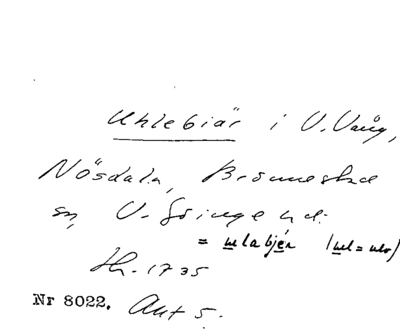 Uhlebiär i V. Vång,
Nösdala, Brönnestad
sn, V. Göinge hd.
= ulabjér (ul = ulv)
Hh. 1735
Nr 8022. Akt 5.